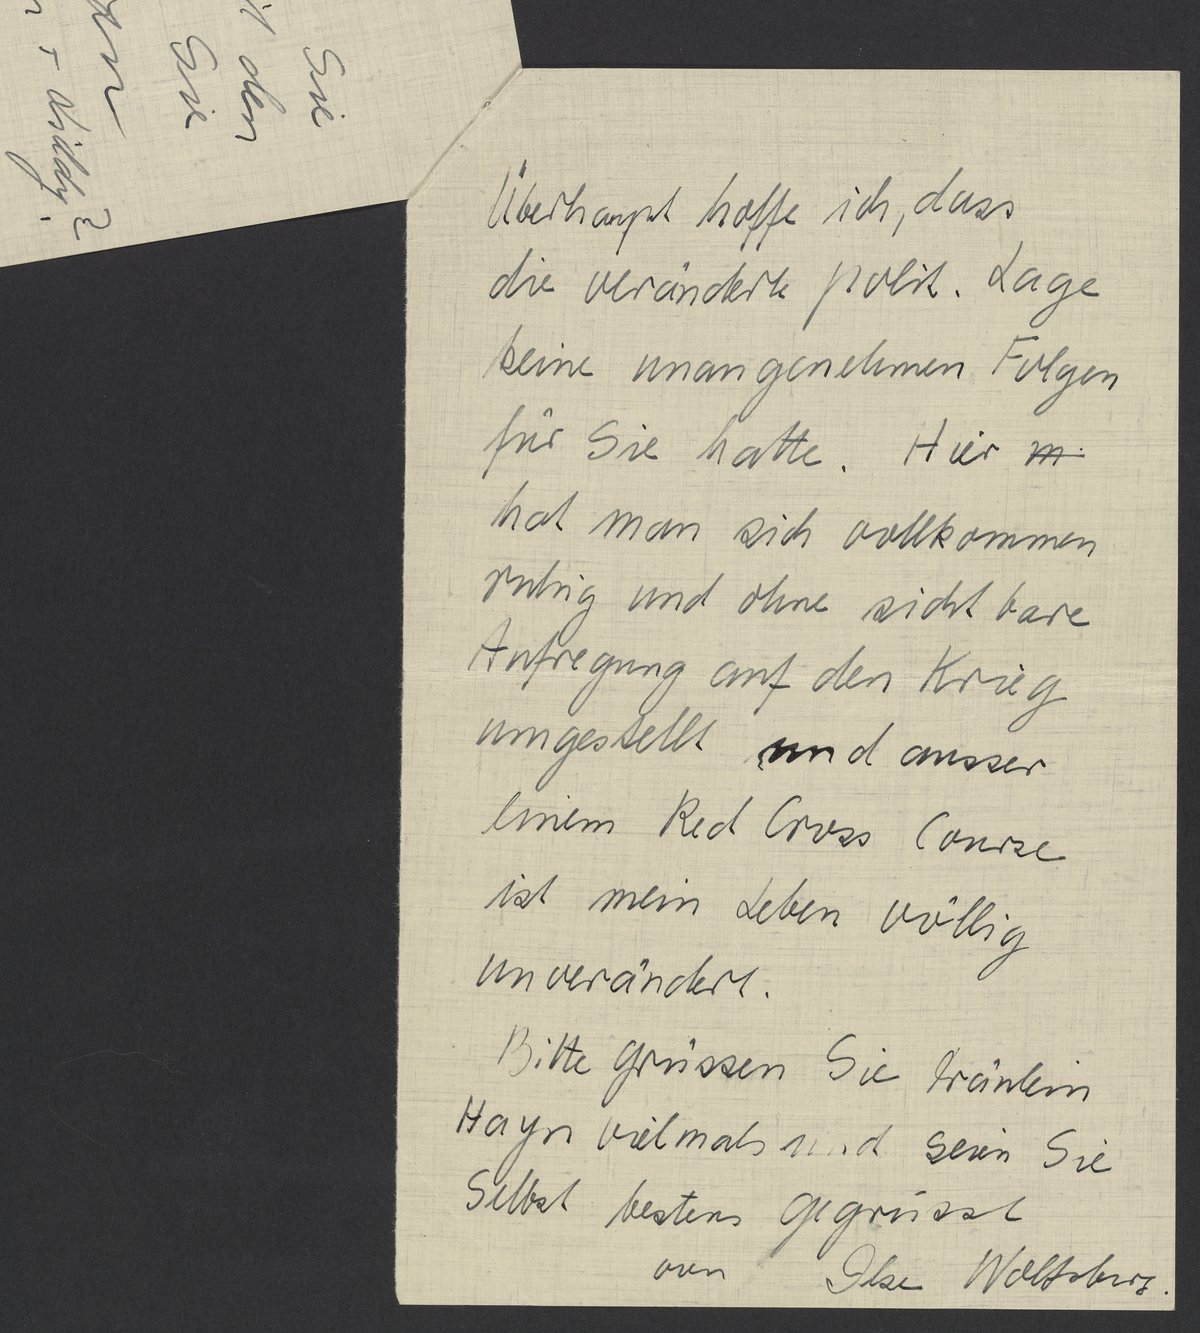 Sie
den
Sie
Überhaupt hoffe ich, dass
die veränderte polit. Lage
keine unangenehmen Folgen
für Sie hatte. Hier m
hat man sich vollkommen
ruhig und ohne sichtbare
Aufregung auf den Krieg
umgestellt und ausser
einem Red Cross Course
ist mein Leben völlig
unverändert.
Bitte grüssen Sie Fräulein
Hayn vielmals und seien Sie
Selbst bestens gegrüsst
von Ilse